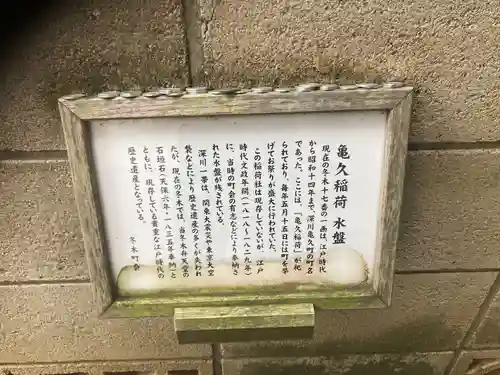 亀久稲荷 水盤
現在の冬木十七番の一画は、江戸時代
から昭和十四年まで、深川亀久町の町名
であった。ここには、「亀久稲荷」が祀
られており、毎年五月十五日には町を挙
げてお祭りが盛大に行われていた。
この稲荷社は現存していないが、江戸
時代文政年間(一八一八~一八二九年)
に、当時の町会の有志などにより奉納さ
れた水盤が残されている。
深川一帯は、関東大震災や東京大空
襲などにより歴史遺産の多くが失われ
たが、現在の冬木では、当冬木弁天堂の
石垣石(天保六年・一八三五年奉納)と
ともに、現存する貴重な江戸時代の
歴史遺産となっている。
冬木町会